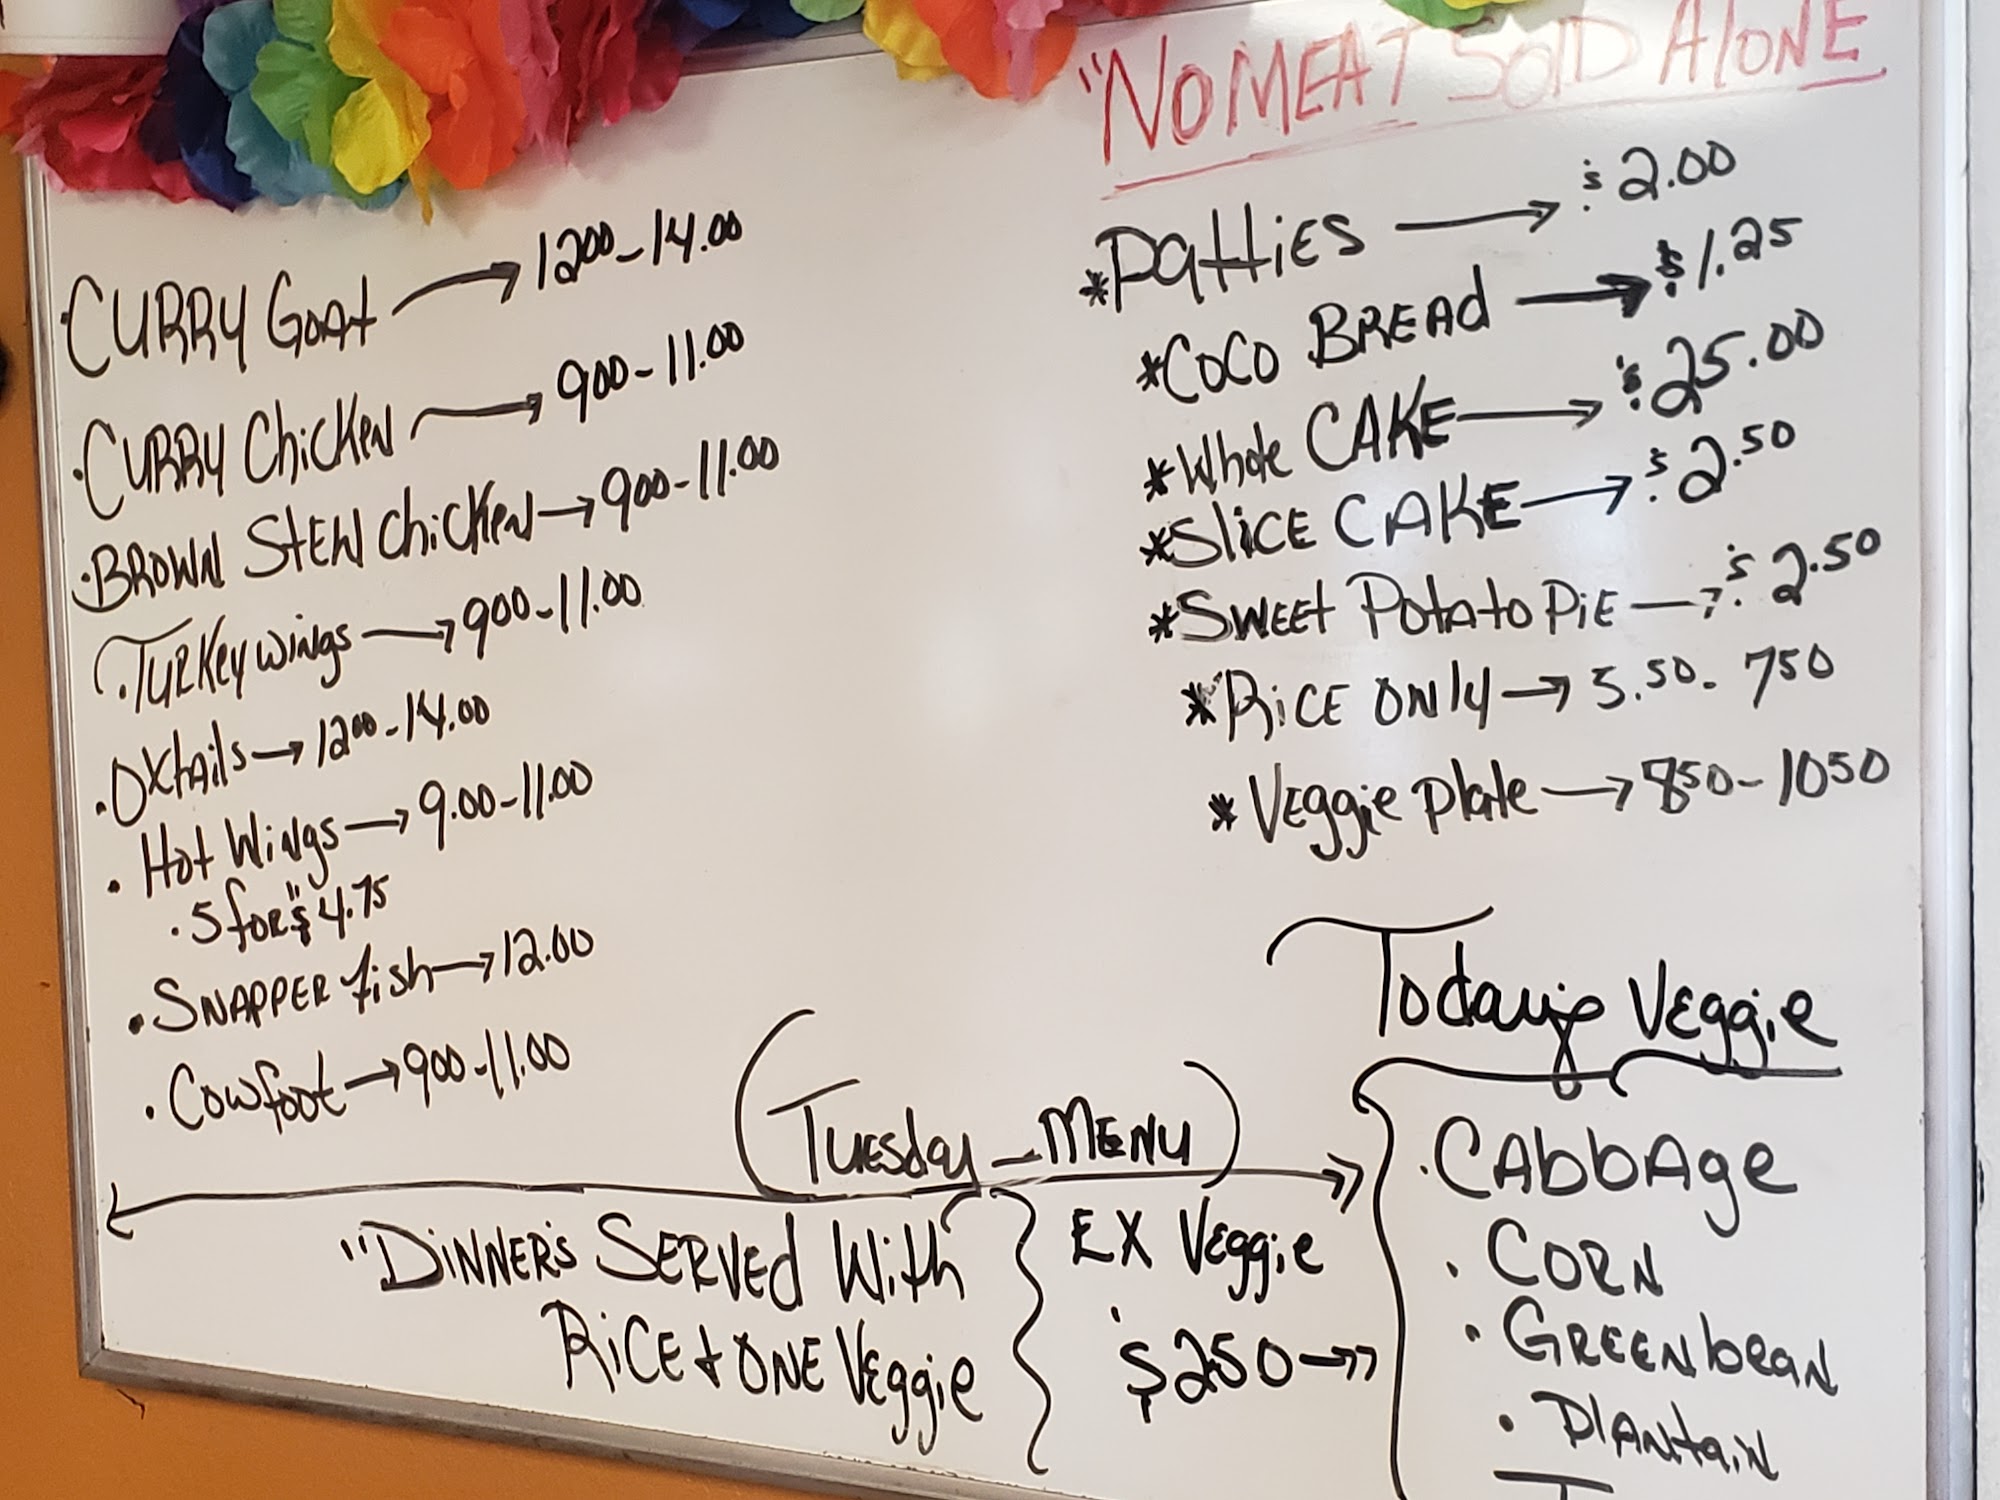 "NO MEAT SOlD AlONE
·CURRY GOAt → 12⁰⁰–14.00
·CURRY ChiCKEN → 9⁰⁰–11.00
·BROWN StEW ChiCKEN → 9⁰⁰–11.00
·TURKEY wings → 9⁰⁰–11.00
·OXtAils → 12⁰⁰–14.00
·Hot Wings → 9.00–11.00
·5 foR "$4.75
·SNAPPER fish → 12.00
·Cowfoot → 9⁰⁰–11.00
*PattiES → $2.00
*COCO BREAd → $1.25
*Whole CAKE → $25.00
*SliCE CAKE → $2.50
*SWEEt PotAto PiE → $2.50
*RiCE ONlY → 5.50 - 7⁵⁰
*VEggiE Plate → 8⁵⁰–10⁵⁰
(TuEsday – MENU)
"DiNNER'S SERVEd With
RiCE + ONE VEggiE
EX VEggiE
$2⁵⁰ →
Today's VEggiE
·CAbbAgE
·CORN
·GREENbEAN
·PlANtaiN